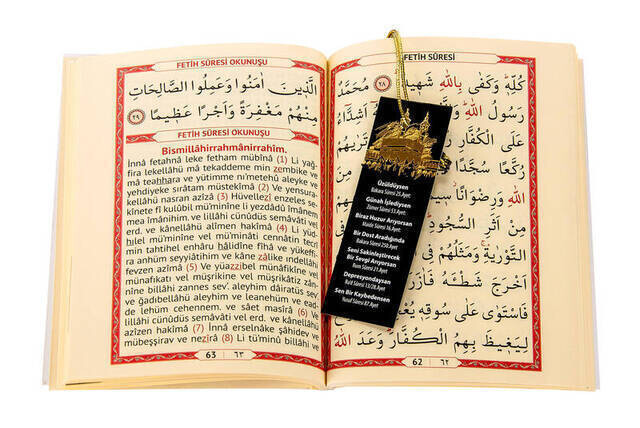 FETİH SÛRESİ
كُلِّهٖ وَكَفٰى بِاللّٰهِ شَهٖيدًا ﴿٢٨﴾ مُحَمَّدٌ
رَسُولُ اللّٰهِ اَشِدَّٓاءُ
عَلَى الْكُفَّارِ تَرٰيهُمْ
رُكَّعًا سُجَّدًا
اللّٰهِ وَرِضْوَانًا
مِنْ اَثَرِ السُّجُودِ
التَّوْرٰيةِ وَمَثَلُهُمْ فِي
اَخْرَجَ شَطْـَٔهُ فَاٰزَرَهُ
فَاسْتَوٰى عَلٰى سُوقِهٖ يُعْجِبُ
لِيَغٖيظَ بِهِمُ الْكُفَّارَ وَعَدَ اللّٰهُ
62 ٦٢
Üzüldüysen
Bakara Sûresi 25.Ayet
Günah İşlediysen
Zümer Sûresi 53.Ayet
Biraz Huzur Arıyorsan
Maide Sûresi 16.Ayet
Bir Dost Aradığında
Bakara Sûresi 250.Ayet
Seni Sakinleştirecek
Bir Sevgi Arıyorsan
Rum Sûresi 21.Ayet
Depresyondaysan
Ra'd Sûresi 13/28.Ayet
Sen Bir Kaybedensen
Yusuf Sûresi 87.Ayet
FETİH SÛRESİ OKUNUŞU
الَّذٖينَ اٰمَنُوا وَعَمِلُوا الصَّالِحَاتِ
مِنْهُمْ مَغْفِرَةً وَاَجْرًا عَظٖيمًا ﴿٢٩﴾
FETİH SÛRESİ OKUNUŞU
Bismillâhirrahmânirrahîm.
İnnâ fetahnâ leke fetham mübînâ (1) Li yağ-
fira lekellâhü mâ tekaddeme min zembike ve
mâ teahhara ve yütimme ni'metehû aleyke ve
yehdiyeke sırâtam müstekîmâ (2) Ve yensura-
kellâhü nasran azîzâ (3) Hüvellezî enzeles se-
kînete fî kulûbil mü'minîne li yezdâdû îmânem
mea îmânihim. ve lillâhi cünûdüs semâvâti vel
erd. ve kânellâhü alîmen hakîmâ (4) Li yüd-
hılel mü'minîne vel mü'minâti cennâtin tecrî
min tahtihel enhâru hâlidîne fîhâ ve yükeffi-
ra anhüm seyyiâtihim ve kâne zâlike ındellâhi
fevzen azîmâ (5) Ve yüazzibel münâfikîne vel
münafikatı vel müşrikîne vel müşrikâtiz zânnî-
nîne billâhi zannes sev'. aleyhim dâiratüs sev'.
ve ğadıbellâhü aleyhim ve leanehüm ve ead-
de lehüm cehennem. ve sâet masîrâ (6) Ve
lillâhi cünûdüs semâvâti vel erd. ve kânellâhü
azîzen hakîmâ (7) İnnâ erselnâke şâhidev ve
mübeşşirav ve nezîrâ (8) Li tü'minû billâhi ve
63 ٦٣